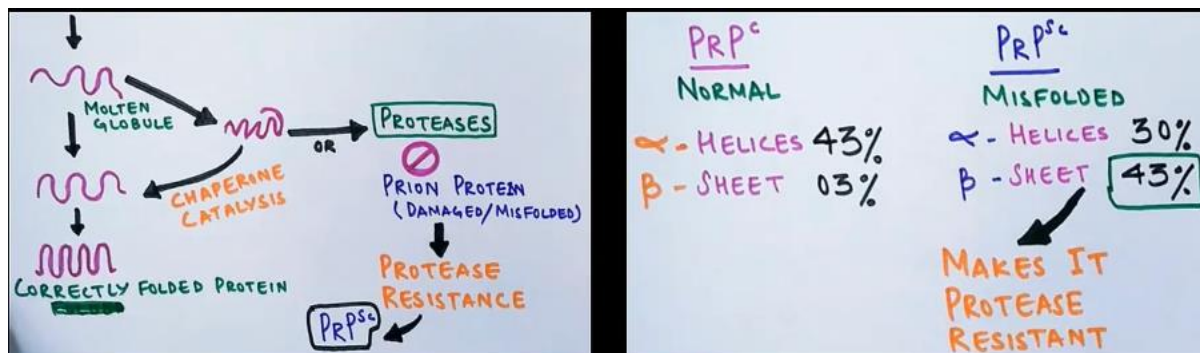 MOLTEN
GLOBULE
OR
PROTEASES
CHAPERONE
CATALYSIS
PRION PROTEIN
(DAMAGED/MISFOLDED)
CORRECTLY FOLDED PROTEIN
PROTEASE
RESISTANCE
PRPSc
PRPc
NORMAL
α - HELICES 43%
β - SHEET 03%
PRPSc
MISFOLDED
α - HELICES 30%
β - SHEET 43%
MAKES IT
PROTEASE
RESISTANT